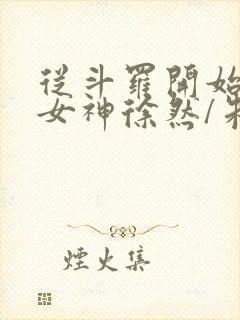 從斗羅開始
女神徐然/
煙火集